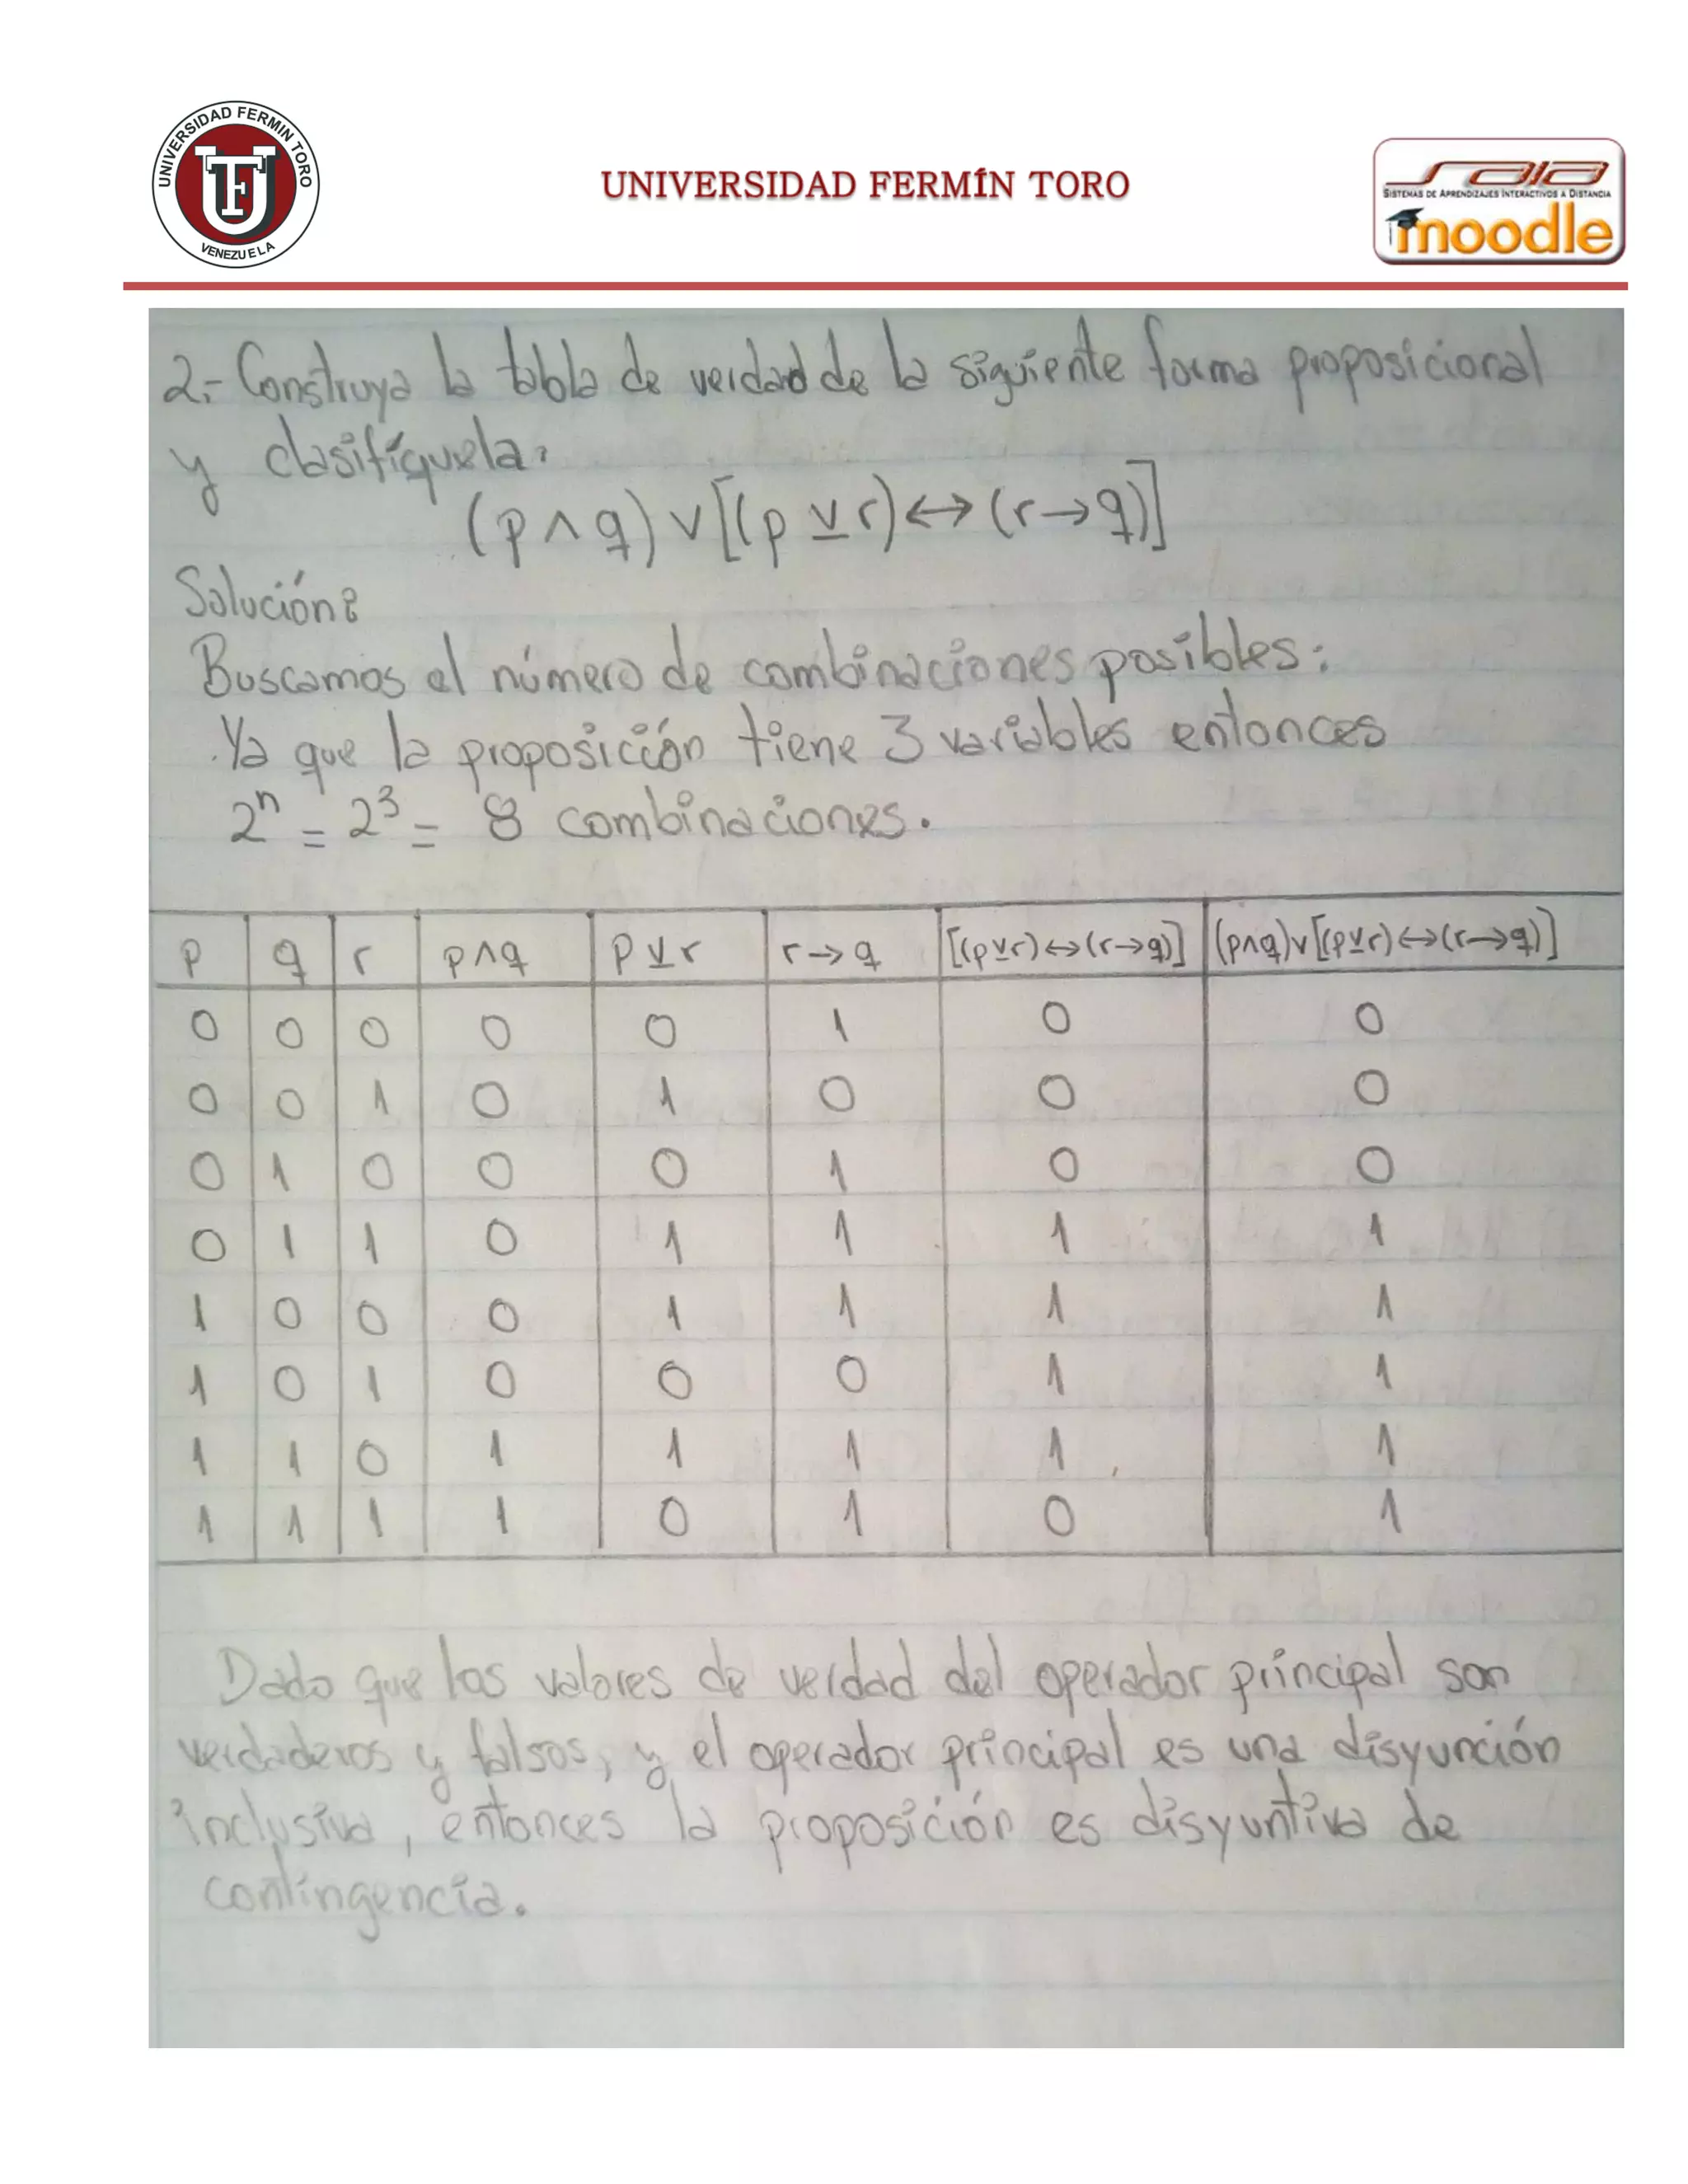 UNIVERSIDAD FERMIN TORO
VENEZUELA
UNIVERSIDAD FERMÍN TORO
SAIA
SISTEMAS DE APRENDIZAJES INTERACTIVOS A DISTANCIA
moodle
2.- Construya la tabla de verdad de la siguiente forma proposicional
y clasifíquela.
(p ∧ q) ∨ [(p ⊻ r) ↔ (r → q)]
Solución:
Buscamos el número de combinaciones posibles:
Ya que la proposición tiene 3 variables entonces
2ⁿ = 2³ = 8 combinaciones.
p q r p∧q p⊻r r→q [(p⊻r)↔(r→q)] (p∧q)∨[(p⊻r)↔(r→q)]
0 0 0 0 0 1 0 0
0 0 1 0 1 0 0 0
0 1 0 0 0 1 0 0
0 1 1 0 1 1 1 1
1 0 0 0 1 1 1 1
1 0 1 0 0 0 1 1
1 1 0 1 1 1 1 1
1 1 1 1 0 1 0 1
Dado que los valores de verdad del operador principal son
verdaderos y falsos, y el operador principal es una disyunción
inclusiva, entonces la proposición es disyuntiva de
contingencia.